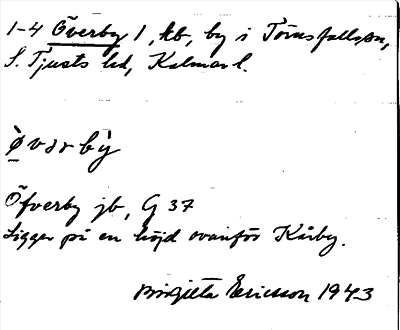 1-4 Överby 1, Ab, by i Törnsfalls sn,
S. Tjusts hd, Kalmar l.
Öfverby jb, G 37
Ligger på en höjd ovanför Kårby.
Birgitta Ericsson 1943